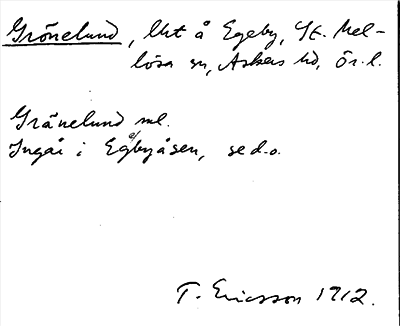 Grönelund, lht å Egeby, St. Mel-
lösa sn, Askers hd, Ör. l.
Gränelund ml.
Ingår i Egebyåsen, se d.o.
T. Ericsson 1912.